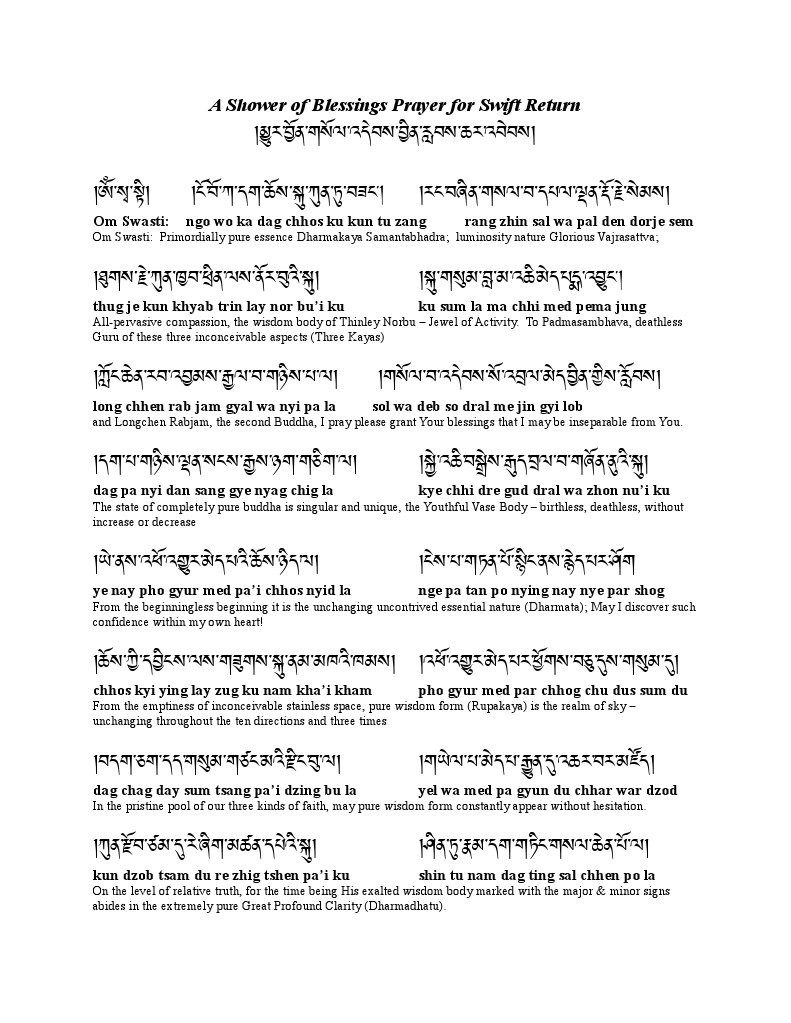 A Shower of Blessings Prayer for Swift Return
།མྱུར་བྱོན་གསོལ་འདེབས་བྱིན་རླབས་ཆར་འབེབས།
།ༀ་སྭ་སྟི། །ངོ་བོ་ཀ་དག་ཆོས་སྐུ་ཀུན་ཏུ་བཟང་། །རང་བཞིན་གསལ་བ་དཔལ་ལྡན་རྡོ་རྗེ་སེམས།
Om Swasti: ngo wo ka dag chhos ku kun tu zang rang zhin sal wa pal den dorje sem
Om Swasti: Primordially pure essence Dharmakaya Samantabhadra; luminosity nature Glorious Vajrasattva;
།ཐུགས་རྗེ་ཀུན་ཁྱབ་ཕྲིན་ལས་ནོར་བུའི་སྐུ། །སྐུ་གསུམ་བླ་མ་འཆི་མེད་པདྨ་འབྱུང་།
thug je kun khyab trin lay nor bu’i ku ku sum la ma chhi med pema jung
All-pervasive compassion, the wisdom body of Thinley Norbu – Jewel of Activity. To Padmasambhava, deathless
Guru of these three inconceivable aspects (Three Kayas)
།ཀློང་ཆེན་རབ་འབྱམས་རྒྱལ་བ་གཉིས་པ་ལ། །གསོལ་བ་འདེབས་སོ་འབྲལ་མེད་བྱིན་གྱིས་རློབས།
long chhen rab jam gyal wa nyi pa la sol wa deb so dral me jin gyi lob
and Longchen Rabjam, the second Buddha, I pray please grant Your blessings that I may be inseparable from You.
།དག་པ་གཉིས་ལྡན་སངས་རྒྱས་ཉག་གཅིག་ལ། །སྐྱེ་འཆི་བསྒྲེས་རྒུད་བྲལ་བ་གཞོན་ནུའི་སྐུ།
dag pa nyi dan sang gye nyag chig la kye chhi dre gud dral wa zhon nu’i ku
The state of completely pure buddha is singular and unique, the Youthful Vase Body – birthless, deathless, without
increase or decrease
།ཡེ་ནས་འཕོ་འགྱུར་མེད་པའི་ཆོས་ཉིད་ལ། །ངེས་པ་གཏན་པོ་སྙིང་ནས་རྙེད་པར་ཤོག
ye nay pho gyur med pa’i chhos nyid la nge pa tan po nying nay nye par shog
From the beginningless beginning it is the unchanging uncontrived essential nature (Dharmata); May I discover such
confidence within my own heart!
།ཆོས་ཀྱི་དབྱིངས་ལས་གཟུགས་སྐུ་ནམ་མཁའི་ཁམས། །འཕོ་འགྱུར་མེད་པར་ཕྱོགས་བཅུ་དུས་གསུམ་དུ།
chhos kyi ying lay zug ku nam kha’i kham pho gyur med par chhog chu dus sum du
From the emptiness of inconceivable stainless space, pure wisdom form (Rupakaya) is the realm of sky –
unchanging throughout the ten directions and three times
།བདག་ཅག་དད་གསུམ་གཙང་མའི་རྫིང་བུ་ལ། །གཡེལ་པ་མེད་པ་རྒྱུན་དུ་འཆར་བར་མཛོད།
dag chag day sum tsang pa’i dzing bu la yel wa med pa gyun du chhar war dzod
In the pristine pool of our three kinds of faith, may pure wisdom form constantly appear without hesitation.
།ཀུན་རྫོབ་ཙམ་དུ་རེ་ཞིག་མཚན་དཔེའི་སྐུ། །ཤིན་ཏུ་རྣམ་དག་གཏིང་གསལ་ཆེན་པོ་ལ།
kun dzob tsam du re zhig tshen pa’i ku shin tu nam dag ting sal chhen po la
On the level of relative truth, for the time being His exalted wisdom body marked with the major & minor signs
abides in the extremely pure Great Profound Clarity (Dharmadhatu).